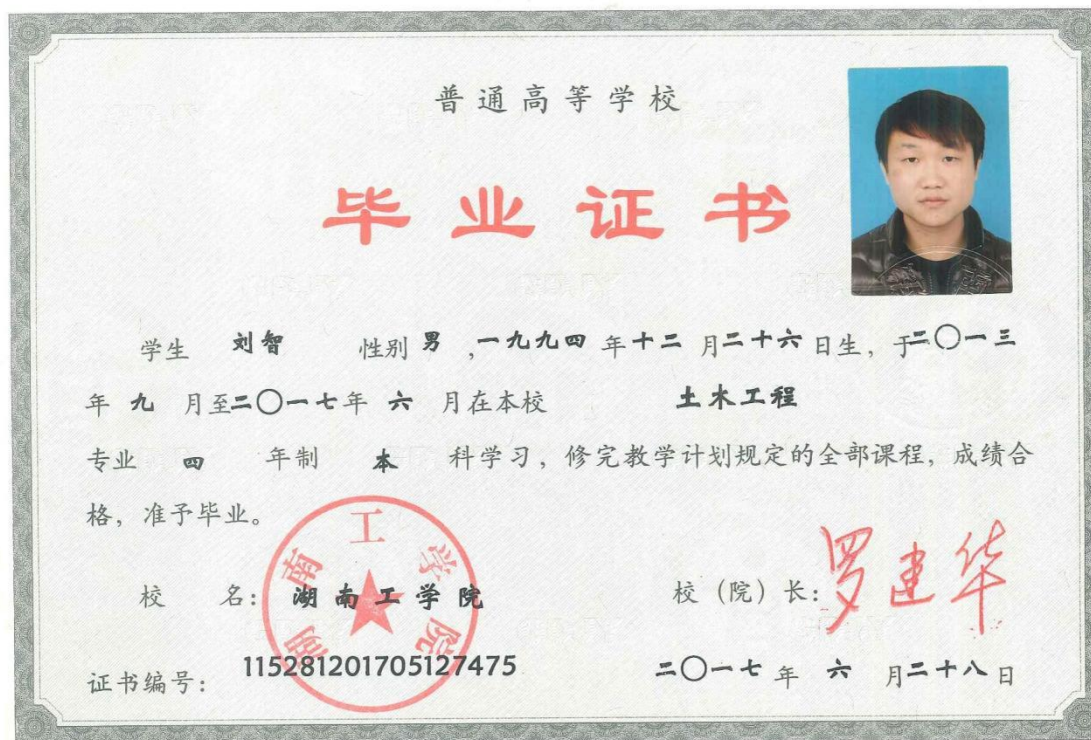 普通高等学校
毕业证书
学生 刘智 性别 男 ,一九九四 年十二 月二十六日生, 于二〇一三
年 九 月至二〇一七年 六 月在本校 土木工程
专业 四 年制 本 科学习, 修完教学计划规定的全部课程, 成绩合
格, 准予毕业。
湖南工学院
校 名: 湖南工学院 校(院)长: 罗建华
证书编号: 115281201705127475 二〇一七 年 六 月二十八日